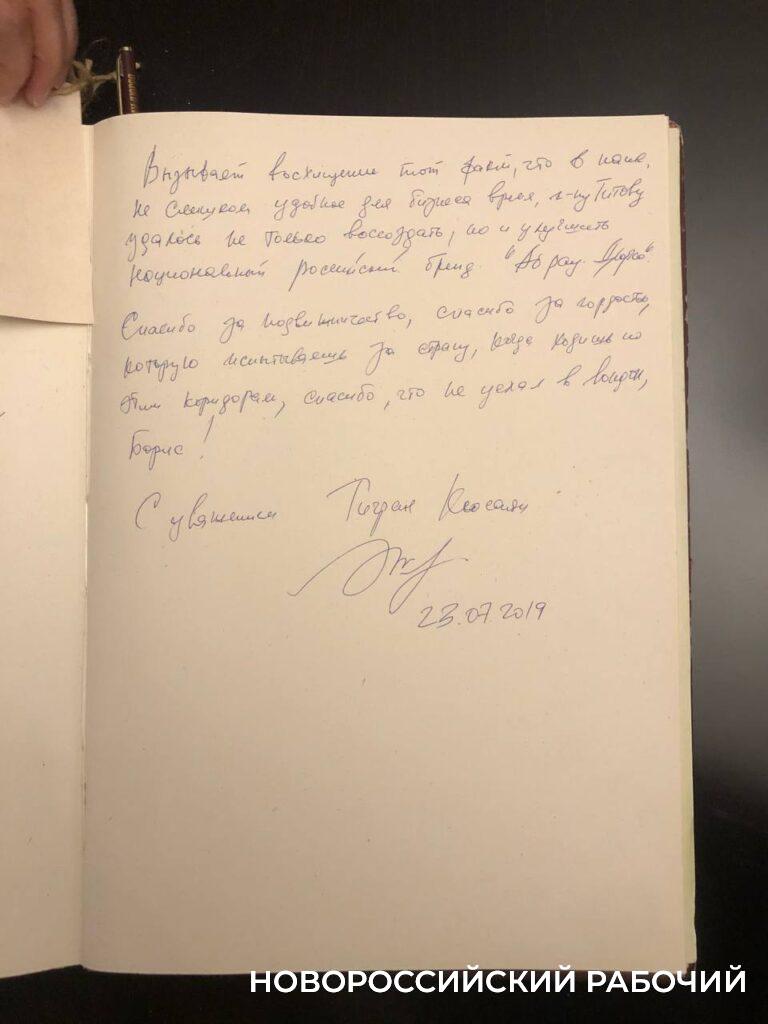 Вызывает восхищение тот факт, что в наше,
не слишком удобное для бизнеса время, г-ну Титову
удалось не только воссоздать, но и улучшить
национальный российский бренд "Абрау-Дюрсо".
Спасибо за подвижничество, спасибо за гордость,
которую испытываешь за страну, когда ходишь по
этим коридорам, спасибо, что не уехал в Лондон,
Борис!
С уважением Тигран Кеосаян
23.07.2019
НОВОРОССИЙСКИЙ РАБОЧИЙ